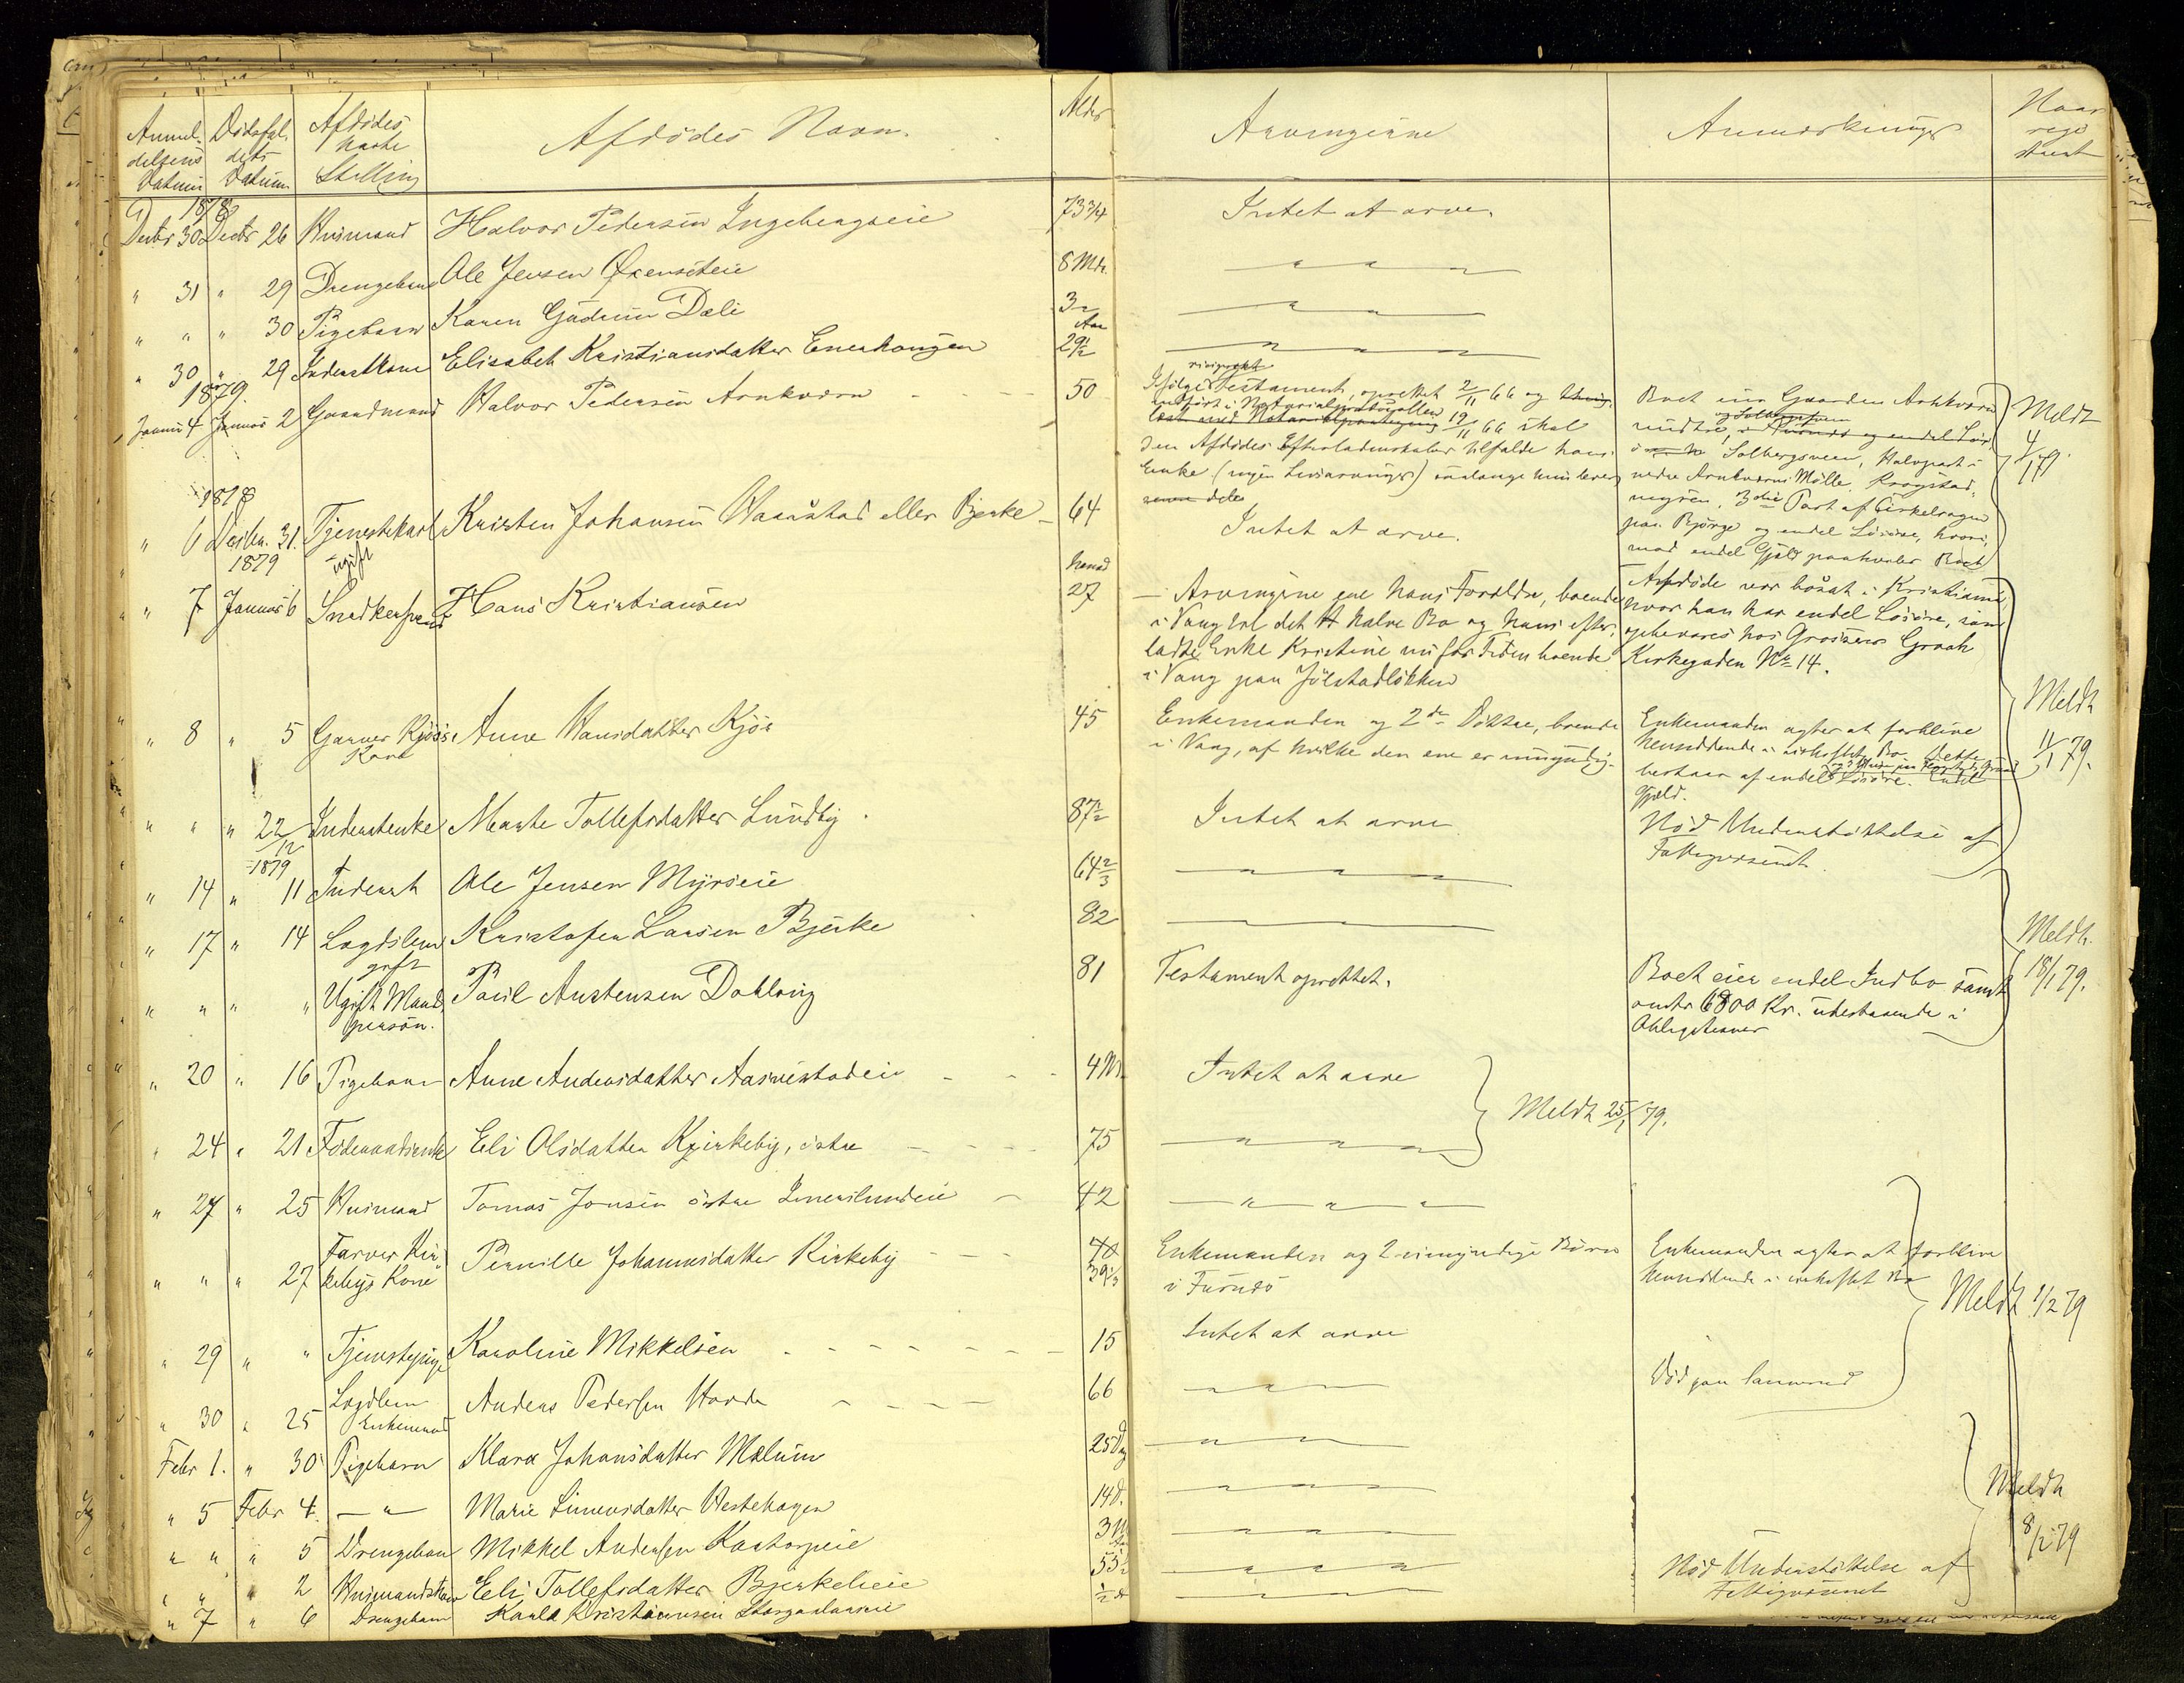 Anmel-
delsens
Datum
Dødsfal-
dets
Datum
Afdødes
Stilling
Afdødes Navn.
Alder
Arvingerne
Anmærkninger
Naar
1878
Decbr 30 Decbr 26 Husmand Halvor Pedersen Ingebergseie 73 3/4 Intet at arve.
" 31 " 29 Drengebarn Ole Jensen 8 Mdr. " " "
" " " 30 Pigebarn Karen Gudrun Dæli 3 " "
Aar
" 30 " 29 Inderstkone Elisabet Kristiansdatter Enerhaugen 29 1/2 " " "
1879.
Januar 4 Januar 2 Gaardmand Halvor Pedersen Arnkværn 50
Ifølge Testament, oprettet 2/11 66 og
indført i Notarialprotokollen 19/11 66 skal
den Afdødes Efterladenskaber tilfalde hans
Enke (ingen Livsarvinger) saalænge hun lever
Boet eier Gaarden Arnkværn
Solbergsveen, Halvpart i
nedre Arnkværns Mølle, Krogstad-
myren, 3die Part af Cirkelsagen
paa Bjørge og endel Løsøre, hvori-
mod endel Gjæld paahviler Boet
Meldt
4/1 79.
1878
" 6 Decbr. 31. Tjenestekarl Kristen Johansen Waarstad eller Bjerke 64 Intet at arve.
ugift
1879
" 7 Januar 6 Snedkersvend Hans Kristiansen 27
Arvingerne ere hans Forældre, boende
i Vang det halve Bo og hans efter-
ladte Enke Kristine nu for Tiden boende
i Vang paa Jølstadløkken
Afdøde var bosat i Kristiania,
hvor han har endel Løsøre, som
opbevares hos Grosserer Graah
Kirkegaden No 14.
" 8 " 5 Garver Kjøs's Anne Hansdatter Kjøs 45
Kone
Enkemanden og 2de Døttre, boende
i Vang, af hvilke den ene er umyndig.
Enkemanden agter at forblive
hensiddende i uskiftet Bo. Dette
bestaar af endel Løsøre. Endel
Gjæld.
Meldt
11/1 79.
" " " 22/12 Inderstenke Marte Tollefsdatter Lundby 87 1/2 Intet at arve
Nød Understøttelse af
Fattigvæsenet.
1879
" 14 " 11 Inderst Ole Jensen Myrseie 64 2/3 " " "
" 17 " 14 Lægdslem Kristofer Larsen Bjerke 82
gift
" " " " Ugift Mands- Poul Austensen Dobloug 81 Testament oprettet.
person.
Boet eier endel Indbo samt
omtr 6800 Kr. udestaaende i
Obligationer
Meldt.
18/1 79.
" 20 " 16 Pigebarn Anne Andersdatter 4 M. Intet at arve
Meldt 25/1 79.
" 24 " 21 Føderaadsenke Eli Olsdatter Kjirkeby, østre 75 " " "
" 27 " 25 Husmand Tomas Jonsen østre 42 " " "
" " " 27 Farver Kir-
kebys Kone Pernille Johannesdatter Kirkeby 39 1/3
Enkemanden og 2 umyndige Børn
i Furnes
Enkemanden agter at forblive
hensiddende i uskiftet Bo
Meldt 1/2 79
" 29 " " Tjenestepige Karoline Mikkelsen 15 Intet at arve
" 30 " 25 Lægdslem Anders Pedersen 66 " " Død paa Sanerud
Enkemand
Febr 1. " 30 Pigebarn Klara Johansdatter Mælum 25 Dg " "
" 5 Febr 4. " Marie Simensdatter Vestehagen 14 D. " " "
" " " 5 Drengebarn Mikkel Andersen 3 M " " "
" " " 2 Husmandskone Eli Tollefsdatter Bjerkelieie 55 1/2 " " "
Nød Understøttelse af
Fattigvæsenet
" 7 " 6 Drengebarn Karl Kristiansen 1/2
Meldt
8/2 79